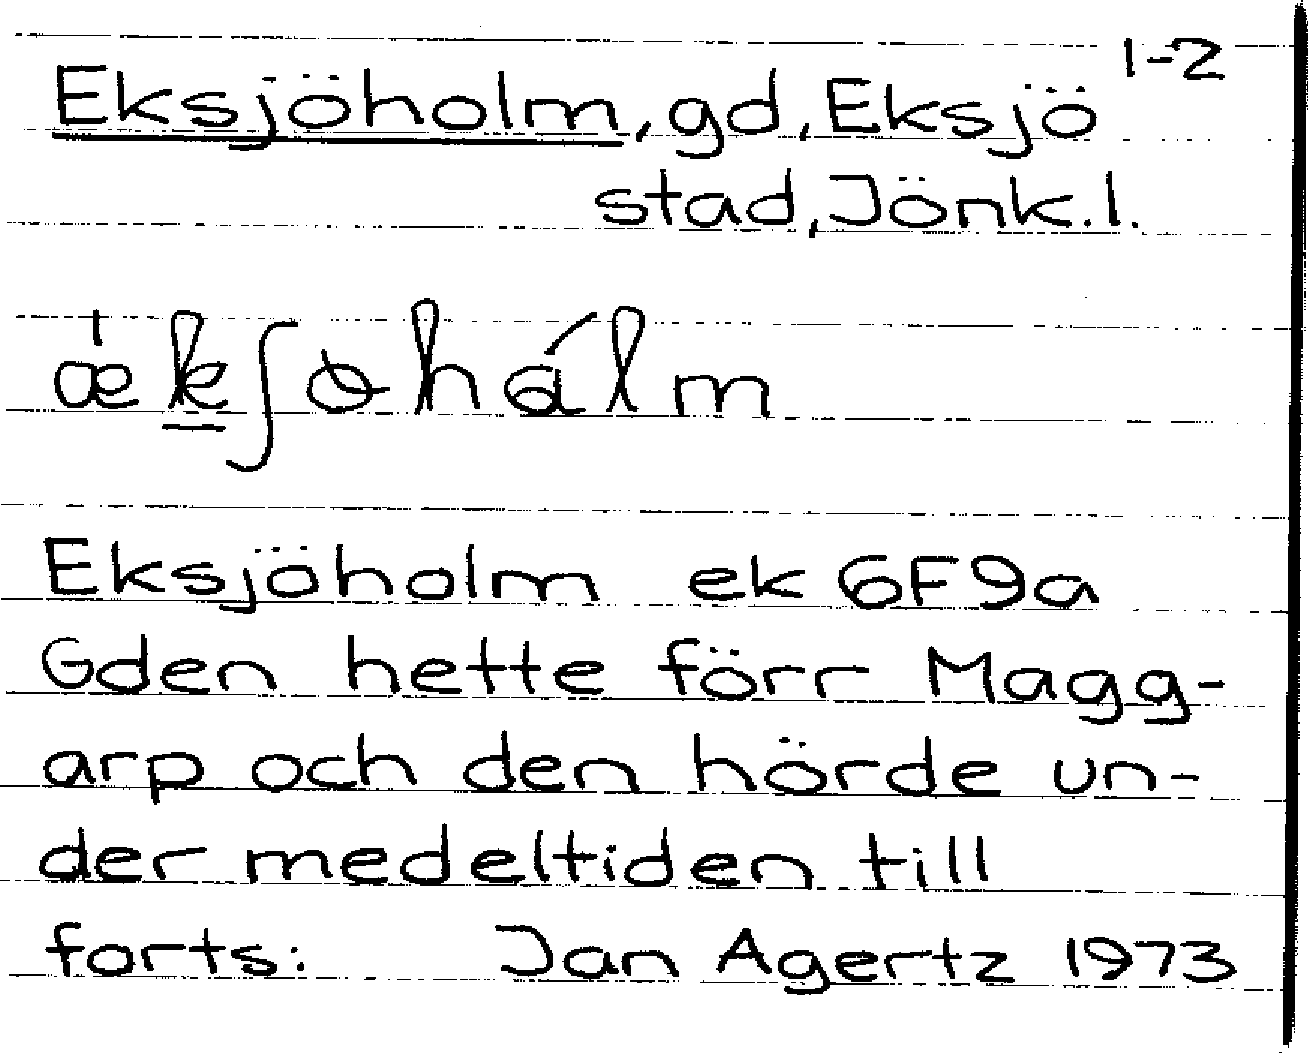 1-2
Eksjöholm, gd, Eksjö
stad, Jönk.l.
Eksjöholm ek 6F9a
Gden hette förr Magg-
arp och den hörde un-
der medeltiden till
forts: Jan Agertz 1973